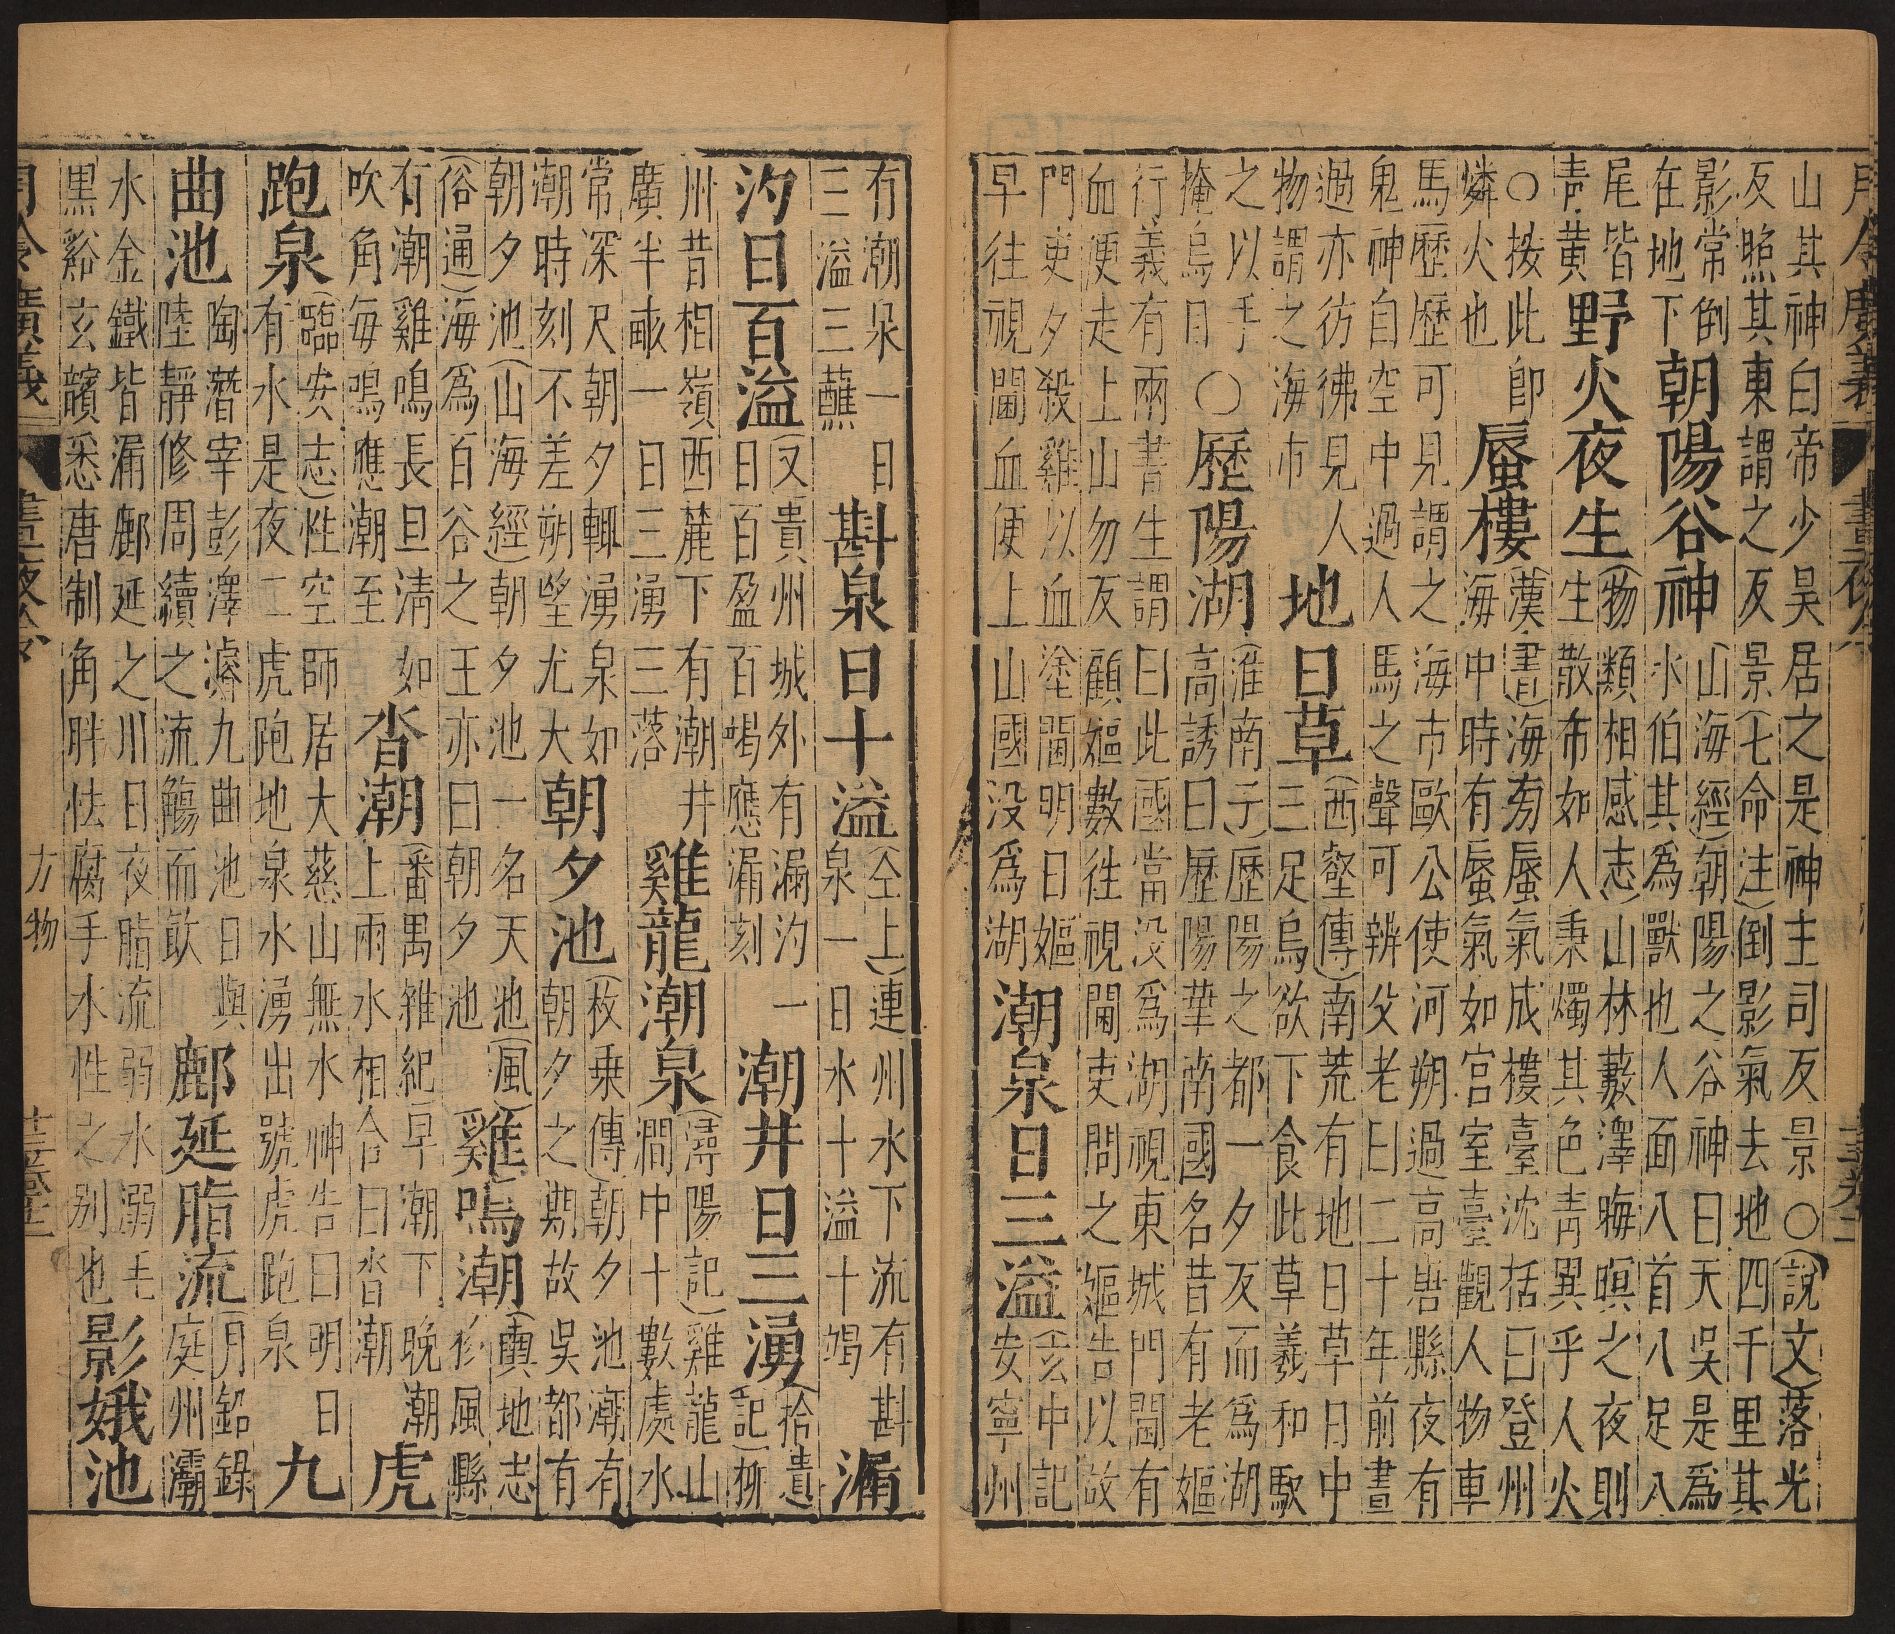 月令廣義
山其神白帝少昊居之是神主司反景○(說文)落光
反照其東謂之反景(七命注)倒影氣去地四千里其
影常倒
在地下
朝陽谷神
(山海經)朝陽之谷神曰天吳是爲
水伯其爲獸也人面八首八足八
尾皆
青黃
野火夜生
(物類相感志)山林藪澤晦暝之夜則
生散布如人秉燭其色青異乎人火
○按此即
燐火也
蜃樓
(漢書)海旁蜃氣成樓臺沈括曰登州
海中時有蜃氣如宮室臺觀人物車
馬歷歷可見謂之海市歐公使河朔過高唐縣夜有
鬼神自空中過人馬之聲可辨父老曰二十年前晝
過亦彷彿見人
物謂之海市
地日草
(西壑傳)南荒有地日草日中
三足烏欲下食此草羲和馭
之以手
掩烏目
○歷陽湖
(淮南子)歷陽之都一夕反而爲湖
高誘曰歷陽華南國名昔有老嫗
行義有兩書生謂曰此國當沒爲湖視東城門閫有
血便走上山勿反顧嫗數往視閫吏問之嫗告以故
門吏夕殺雞以血塗閫明日嫗
早往視閫血便上山國沒爲湖
潮泉日三溢
(玄中記
安寧州
有潮泉一日
三溢三蘸
斟泉日十溢
(仝上)(連州水下流有斟
泉一日水十溢十竭
漏
汐日百溢
(又貴州城外有漏汐一
日百盈百竭應漏刻
潮井日三湧
(拾遺
記)柳
州昔相嶺西麓下有潮井
廣半畝一日三湧三落
雞龍潮泉
(潯陽記)雞龍山
澗中十數處水
常深尺朝夕輒湧泉如
潮時刻不差朔望尤大
朝夕池
(枚乗傳)朝夕池潮有
朝夕之期故吳都有
朝夕池(山海經)朝夕池一名天池(風
俗通)海爲百谷之王亦曰朝夕池
雞鳴潮
(輿地志
移風縣
有潮雞鳴長旦清如
吹角每鳴應潮至
沓潮
(番禺雜紀)早潮下晚潮
上兩水相合曰沓潮
虎
跑泉
(臨安志)性空師居大慈山無水神告曰明日
有水是夜二虎跑地泉水湧出號虎跑泉
九
曲池
陶潛宰彭澤濬九曲池日與
陸靜修周續之流觴而飲
鄜延脂流
(月鉛錄
庭州灞
水金鐵皆漏鄜延之川日夜脂流弱水溺毛
黑谿玄鬢悉唐制角胖怯腐手水性之别也
影娥池
月令廣義
晝夜令
方物